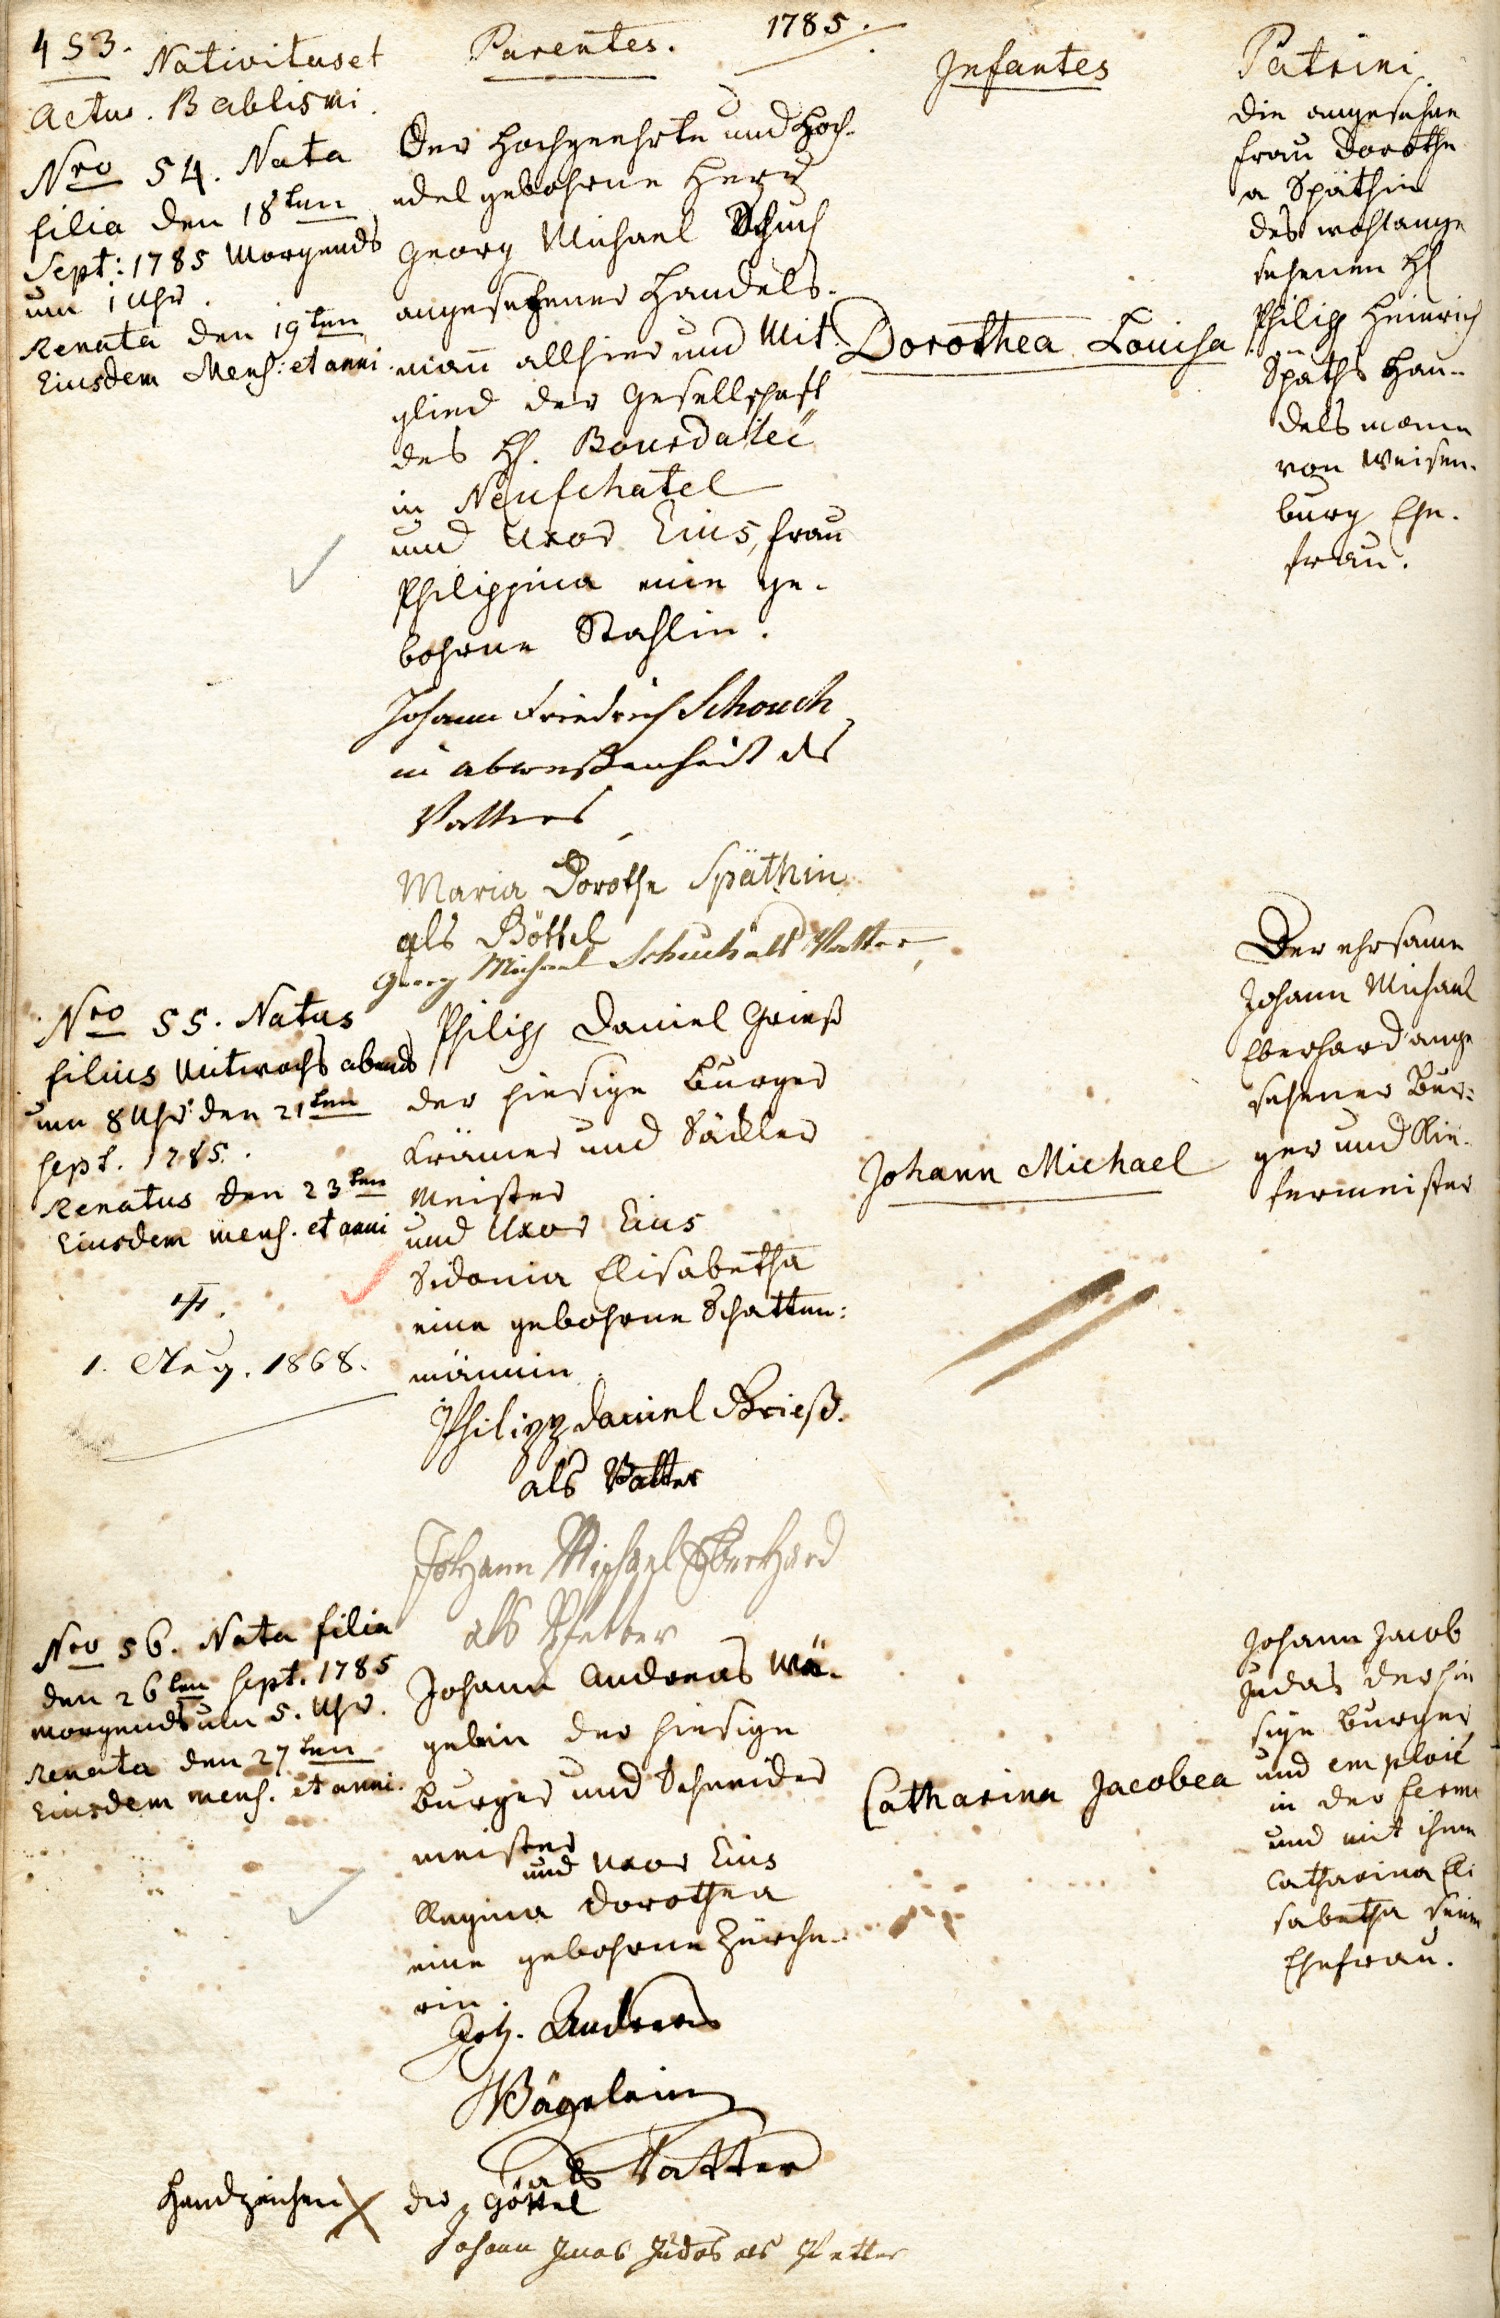 453.
1785.
Nativitas et
Actus. Babtismi.
Parentes.
Infantes
Patrini
Nro 54. Nata
filia den 18ten
Sept: 1785 Morgends
um 1 Uhr.
Renata den 19ten
Eiusdem Mens: et anni.
Der Hochgeehrte und Hoch-
edel gebohrne Herr
Georg Michael Schuch
angesehener Handels-
mañ allhier und Mit-
glied der Gesellschaft
des H. Bourdallei
in Neufchatel
und Uxor Eius, Frau
Philippina eine ge-
bohrne Stahlin.
Johann Friedrich Schouch
in abweßenheit des
Vatters
Maria Dorothe Späthin
als Göttel
Georg Michael Schuch als Vatter
Dorothea Louisa
die angesehne
Frau Dorothe
a Späthin
des wohlange
sehenen H
Philipp Heinrich
Späths Han-
delsmann
von Weisen-
burg Ehe-
frau.
Nro 55. Natus
filius Mitwochs abends
um 8 Uhr den 21ten
Sept. 1785.
Renatus den 23ten
Eiusdem mens. et anni
1. Aug. 1868.
Philipp Daniel Grieß
der hiesige Burger
Krämer und Säckler
Meister
und Uxor Eius
Sidonia Elisabetha
eine gebohrne Schatten:
männin
Philipp Daniel Grieß.
als Vatter
Johann Michael Eberhard
als Pfetter
Johann Michael
Der ehrsame
Johann Michael
Eberhard ange
sehener Bur:
ger und Kie-
fermeister
Nro 56. Nata filia
den 26ten Sept. 1785
morgends um 5. Uhr.
Renata den 27ten
Eiusdem mens. et anni.
Johann Andreas Wä-
gelein der hiesige
Burger und Schneider
meister
und Uxor Eius
Regina Dorothea
eine gebohrne Zürche-
rin.
Joh. Andreas
Wägelein
als Vatter
Handzeichen X der Göttel
Johann Jacob Judas als Pfetter
Catharina Jacobea
Johann Jacob
Judas der hie
sige Burger
und emploié
in der ferme
und mit ihme
Catharina Eli
sabetha seine
Ehefrau.